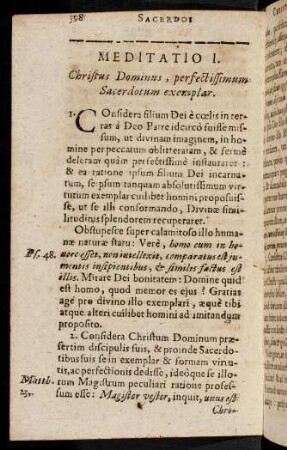 398 SACERDOS
MEDITATIO I.
Christus Dominus, perfectissimum
Sacerdotum exemplar.
1. Considera filium Dei è cœlis in ter-
ras à Deo Patre idcircò fuisse mis-
sum, ut divinam imaginem, in ho-
mine per peccatum oblitteratam, & fermè
deletam quàm perfectissimè instauraret:
& ea ratione ipsum filium Dei incarna-
tum, seipsum tanquam absolutissimum vir-
tutum exemplar cuilibet homini proposuis-
se, ut se illi conformando, Divinæ simi-
litudinis splendorem recuperaret.
Obstupesce super calamitoso illo huma-
næ naturæ statu: Verè, homo cum in ho-
Ps. 48. nore esset, non intellexit, comparatus est ju-
mentis insipientibus, & similis factus est
illis. Mirare Dei bonitatem: Domine quid
est homo, quod memor es ejus? Gratias
age pro divino illo exemplari, æquè tibi
atque alteri cuilibet homini ad imitandum
proposito.
2. Considera Christum Dominum præ-
sertim discipulis suis, & proinde Sacerdo-
tibus suis se in exemplar & formam virtu-
tis, ac perfectionis dedisse, ideóque se illo-
Matth. rum Magistrum peculiari ratione profes-
23. sum esse: Magister vester, inquit, unus est
Chri-